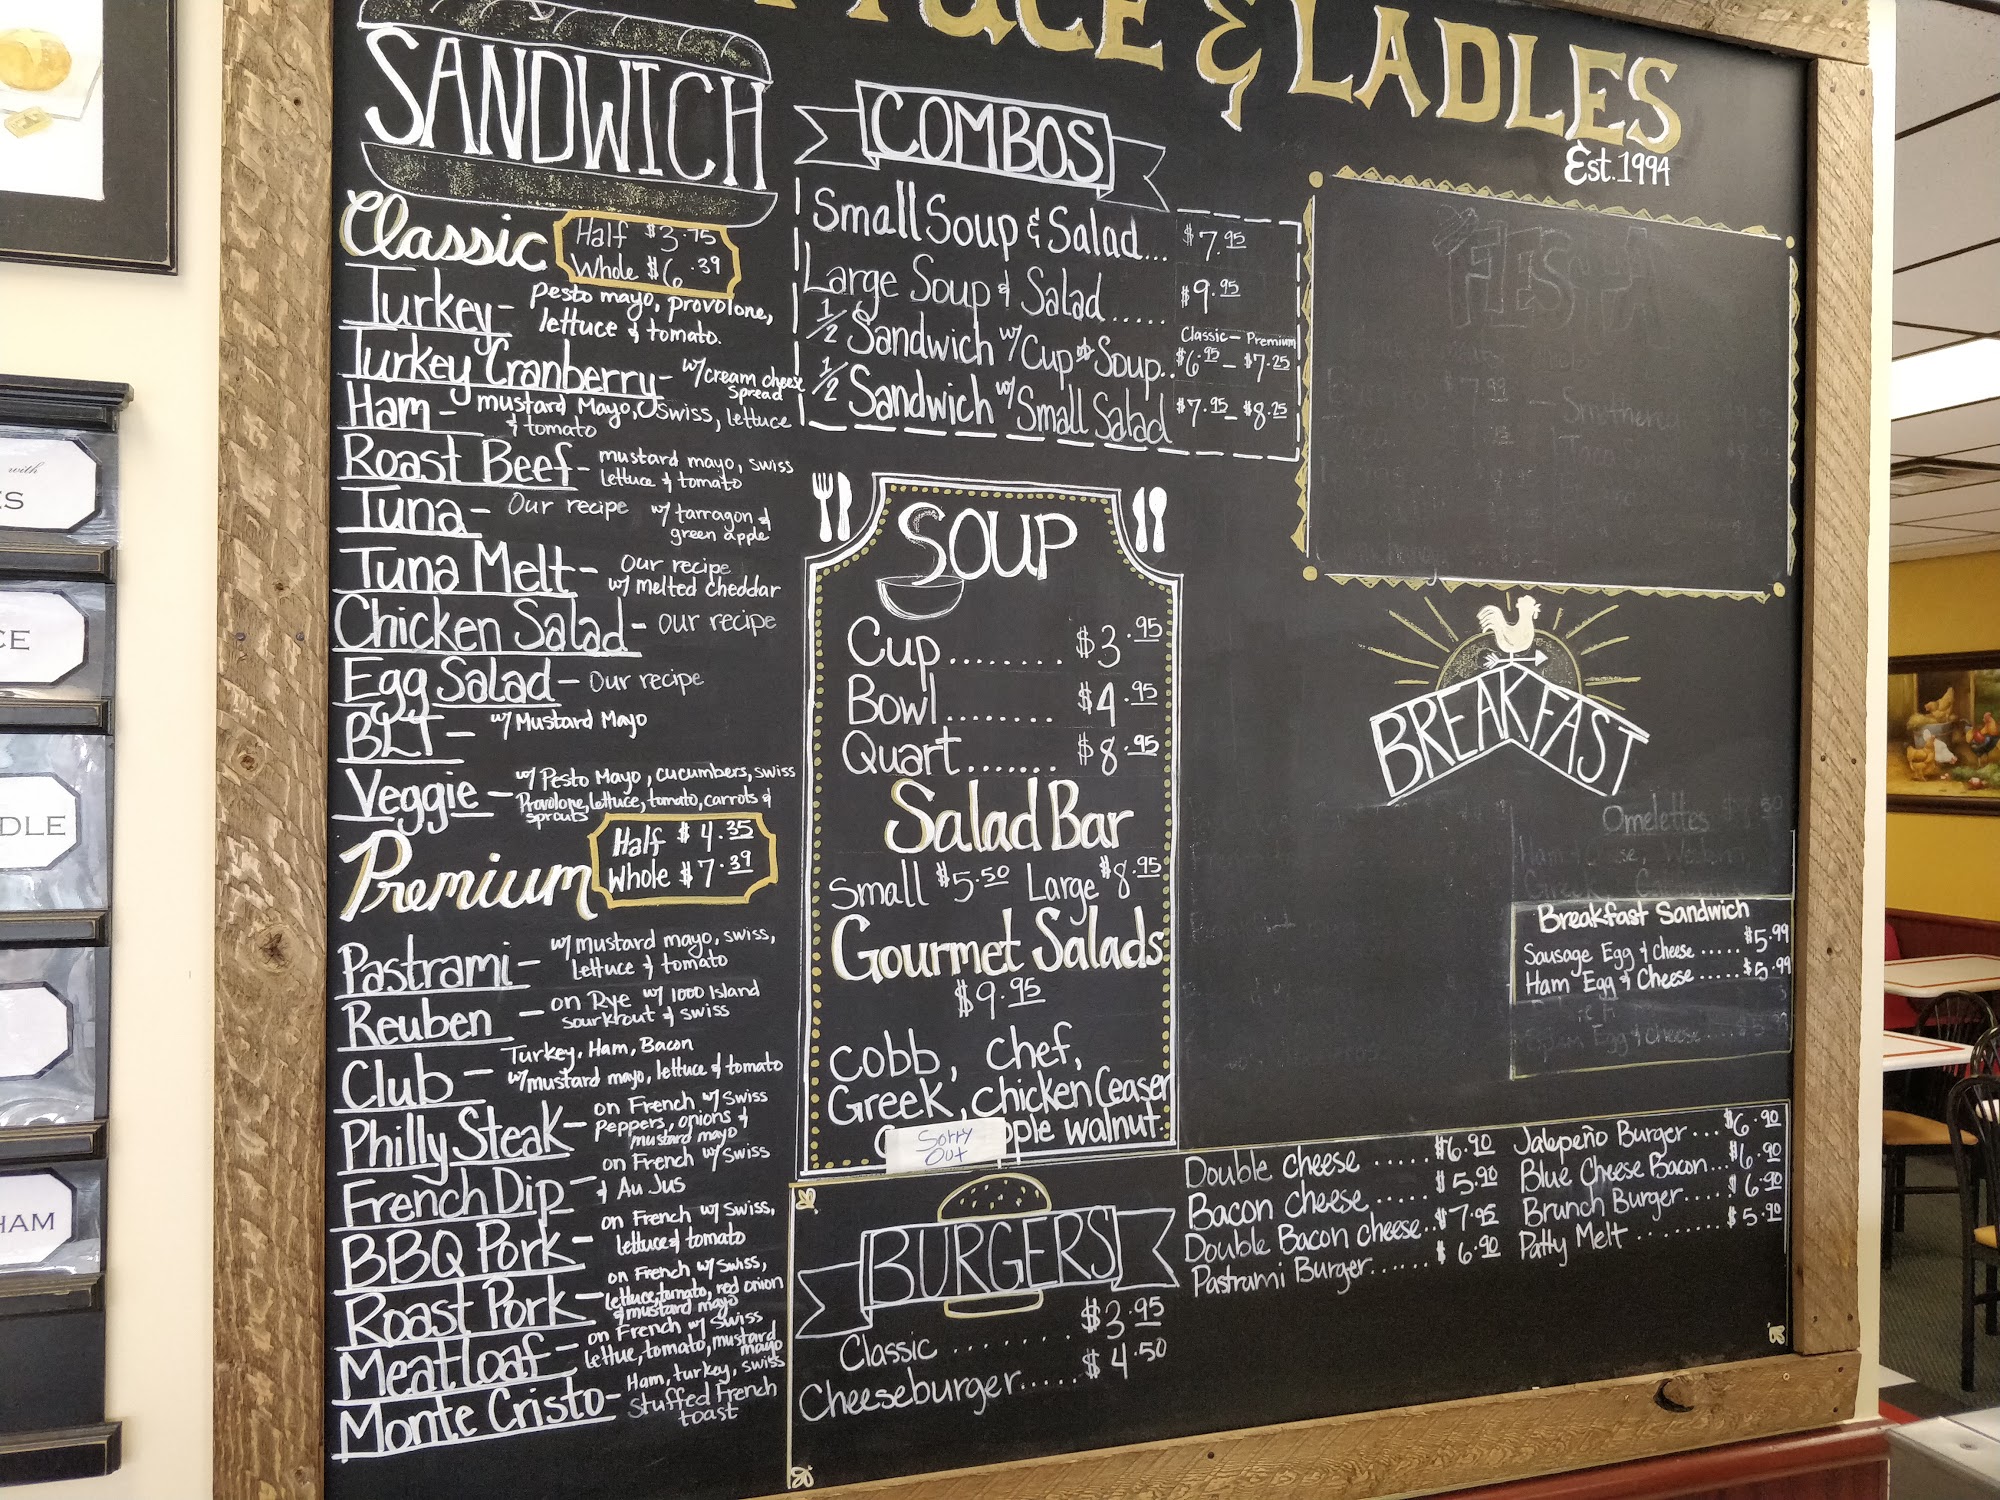 & LADLES
Est. 1994
SANDWICH
Classic
Half $3.75
Whole $6.39
Turkey - Pesto mayo, provolone,
lettuce & tomato.
Turkey Cranberry - w/ cream cheese
spread
Ham - mustard Mayo, Swiss, lettuce
& tomato
Roast Beef - mustard mayo, swiss
lettuce & tomato
Tuna - Our recipe w/ tarragon &
green apple
Tuna Melt - Our recipe
w/ melted cheddar
Chicken Salad - our recipe
Egg Salad - Our recipe
BLT - w/ Mustard Mayo
Veggie - w/ Pesto Mayo, cucumbers, swiss
Provolone, lettuce, tomato, carrots &
sprouts
Premium
Half $4.35
Whole $7.39
Pastrami - w/ mustard mayo, swiss,
lettuce & tomato
Reuben - on Rye w/ 1000 Island
sourkrout & swiss
Club - Turkey, Ham, Bacon
w/ mustard mayo, lettuce & tomato
Philly Steak - on French w/ Swiss
peppers, onions &
mustard mayo
French Dip - on French w/ Swiss
& Au Jus
BBQ Pork - on French w/ Swiss,
lettuce & tomato
Roast Pork - on French w/ Swiss,
lettuce, tomato, red onion
& mustard mayo
Meatloaf - on French w/ Swiss
lettue, tomato, mustard
mayo
Monte Cristo - Ham, turkey, swiss
stuffed French
toast
COMBOS
Small Soup & Salad... $7.95
Large Soup & Salad..... $9.95
Classic - Premium
1/2 Sandwich w/ Cup Soup.. $6.95 - $7.25
1/2 Sandwich w/ Small Salad $7.95 - $8.25
SOUP
Cup........ $3.95
Bowl........ $4.95
Quart....... $8.95
Salad Bar
Small $5.50 Large $8.95
Gourmet Salads
$9.95
cobb, chef,
Greek, chicken Ceaser
pple walnut.
Sorry
Out
BURGERS
Classic ....... $3.95
Cheeseburger..... $4.50
Double Cheese ..... $6.90
Bacon Cheese..... $5.90
Double Bacon Cheese.. $7.95
Pastrami Burger...... $6.90
Jalepeño Burger... $6.90
Blue Cheese Bacon... $6.90
Brunch Burger..... $6.90
Patty Melt ....... $5.90
FIESTA
BREAKFAST
Omelettes
Breakfast Sandwich
Sausage Egg & Cheese ..... $5.99
Ham Egg & Cheese ..... $5.99
Egg & Cheese
with
CE
DLE
HAM